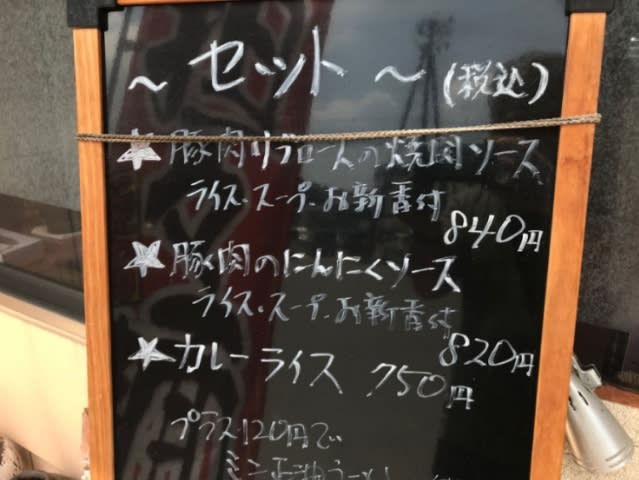 ～ セット ～ (税込)
★豚肉リブロースの焼肉ソース
ライス・スープ・お新香付
840円
★豚肉のにんにくソース
ライス・スープ・お新香付
820円
★カレーライス 750円
プラス120円で
ミニ正油ラーメン